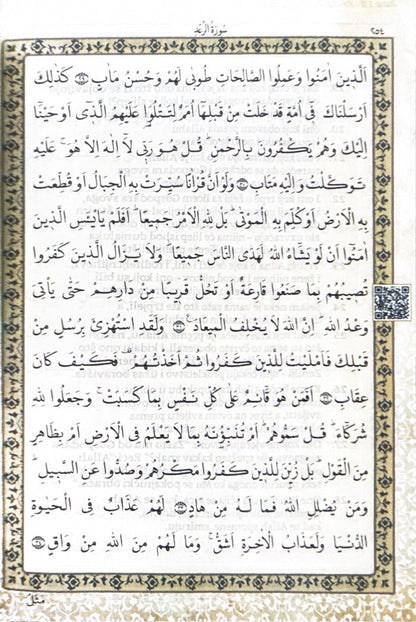 سُورَةُ الرَّعْدِ
٢٥٤
اَلَّذ۪ينَ اٰمَنُوا وَعَمِلُوا الصَّالِحَاتِ طُوبٰى لَهُمْ وَحُسْنُ مَاٰبٍ ﴿٢٩﴾ كَذٰلِكَ
اَرْسَلْنَاكَ ف۪ٓي اُمَّةٍ قَدْ خَلَتْ مِنْ قَبْلِهَٓا اُمَمٌ لِتَتْلُوَ۬ا عَلَيْهِمُ الَّذ۪ٓي اَوْحَيْنَٓا
اِلَيْكَ وَهُمْ يَكْفُرُونَ بِالرَّحْمٰنِۜ قُلْ هُوَ رَبّ۪ي لَٓا اِلٰهَ اِلَّا هُوَۚ عَلَيْهِ
تَوَكَّلْتُ وَاِلَيْهِ مَتَابِ ﴿٣٠﴾ وَلَوْ اَنَّ قُرْاٰنًا سُيِّرَتْ بِهِ الْجِبَالُ اَوْ قُطِّعَتْ
بِهِ الْاَرْضُ اَوْ كُلِّمَ بِهِ الْمَوْتٰىۜ بَلْ لِلّٰهِ الْاَمْرُ جَم۪يعًاۜ اَفَلَمْ يَايْـَٔسِ الَّذ۪ينَ
اٰمَنُٓوا اَنْ لَوْ يَشَٓاءُ اللّٰهُ لَهَدَى النَّاسَ جَم۪يعًاۜ وَلَا يَزَالُ الَّذ۪ينَ كَفَرُوا
تُص۪يبُهُمْ بِمَا صَنَعُوا قَارِعَةٌ اَوْ تَحُلُّ قَر۪يبًا مِنْ دَارِهِمْ حَتّٰى يَأْتِيَ
وَعْدُ اللّٰهِۜ اِنَّ اللّٰهَ لَا يُخْلِفُ الْم۪يعَادَ۟ ﴿٣١﴾ وَلَقَدِ اسْتُهْزِئَ بِرُسُلٍ مِنْ
قَبْلِكَ فَاَمْلَيْتُ لِلَّذ۪ينَ كَفَرُوا ثُمَّ اَخَذْتُهُمْ۠ فَكَيْفَ كَانَ
عِقَابِ ﴿٣٢﴾ اَفَمَنْ هُوَ قَٓائِمٌ عَلٰى كُلِّ نَفْسٍ بِمَا كَسَبَتْۚ وَجَعَلُوا لِلّٰهِ
شُرَكَٓاءَۜ قُلْ سَمُّوهُمْۜ اَمْ تُنَبِّؤُ۫نَهُ بِمَا لَا يَعْلَمُ فِي الْاَرْضِ اَمْ بِظَاهِرٍ
مِنَ الْقَوْلِۜ بَلْ زُيِّنَ لِلَّذ۪ينَ كَفَرُوا مَكْرُهُمْ وَصُدُّوا عَنِ السَّب۪يلِۜ
وَمَنْ يُضْلِلِ اللّٰهُ فَمَا لَهُ مِنْ هَادٍ ﴿٣٣﴾ لَهُمْ عَذَابٌ فِي الْحَيٰوةِ
الدُّنْيَا وَلَعَذَابُ الْاٰخِرَةِ اَشَقُّۚ وَمَا لَهُمْ مِنَ اللّٰهِ مِنْ وَاقٍ ﴿٣٤﴾
مَثَلُ